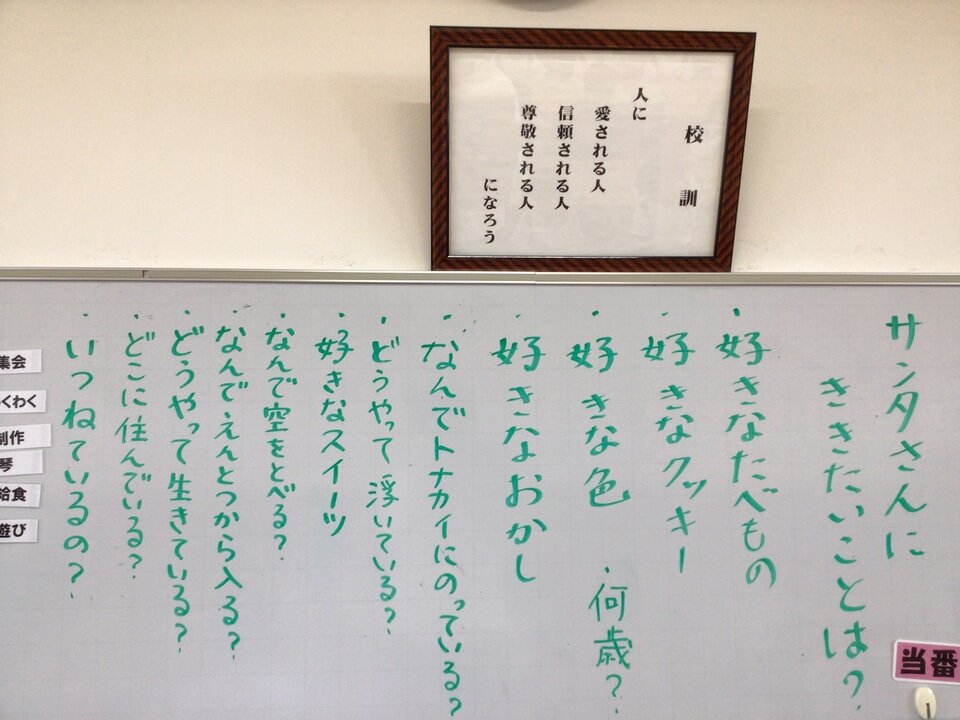 校訓
人に
愛される人
信頼される人
尊敬される人
になろう
サンタさんに
ききたいことは?
・好きなたべもの
・好きなクッキー
・好きな色
・何歳?
・好きなおかし
・なんでトナカイにのっている?
・どうやって浮いている?
・好きなスイーツ
・なんで空をとべる?
・なんでえんとつから入る?
・どうやって生きている?
・どこに住んでいる?
・いつねているの?
集会
くわく
制作
琴
給食
遊び
当番